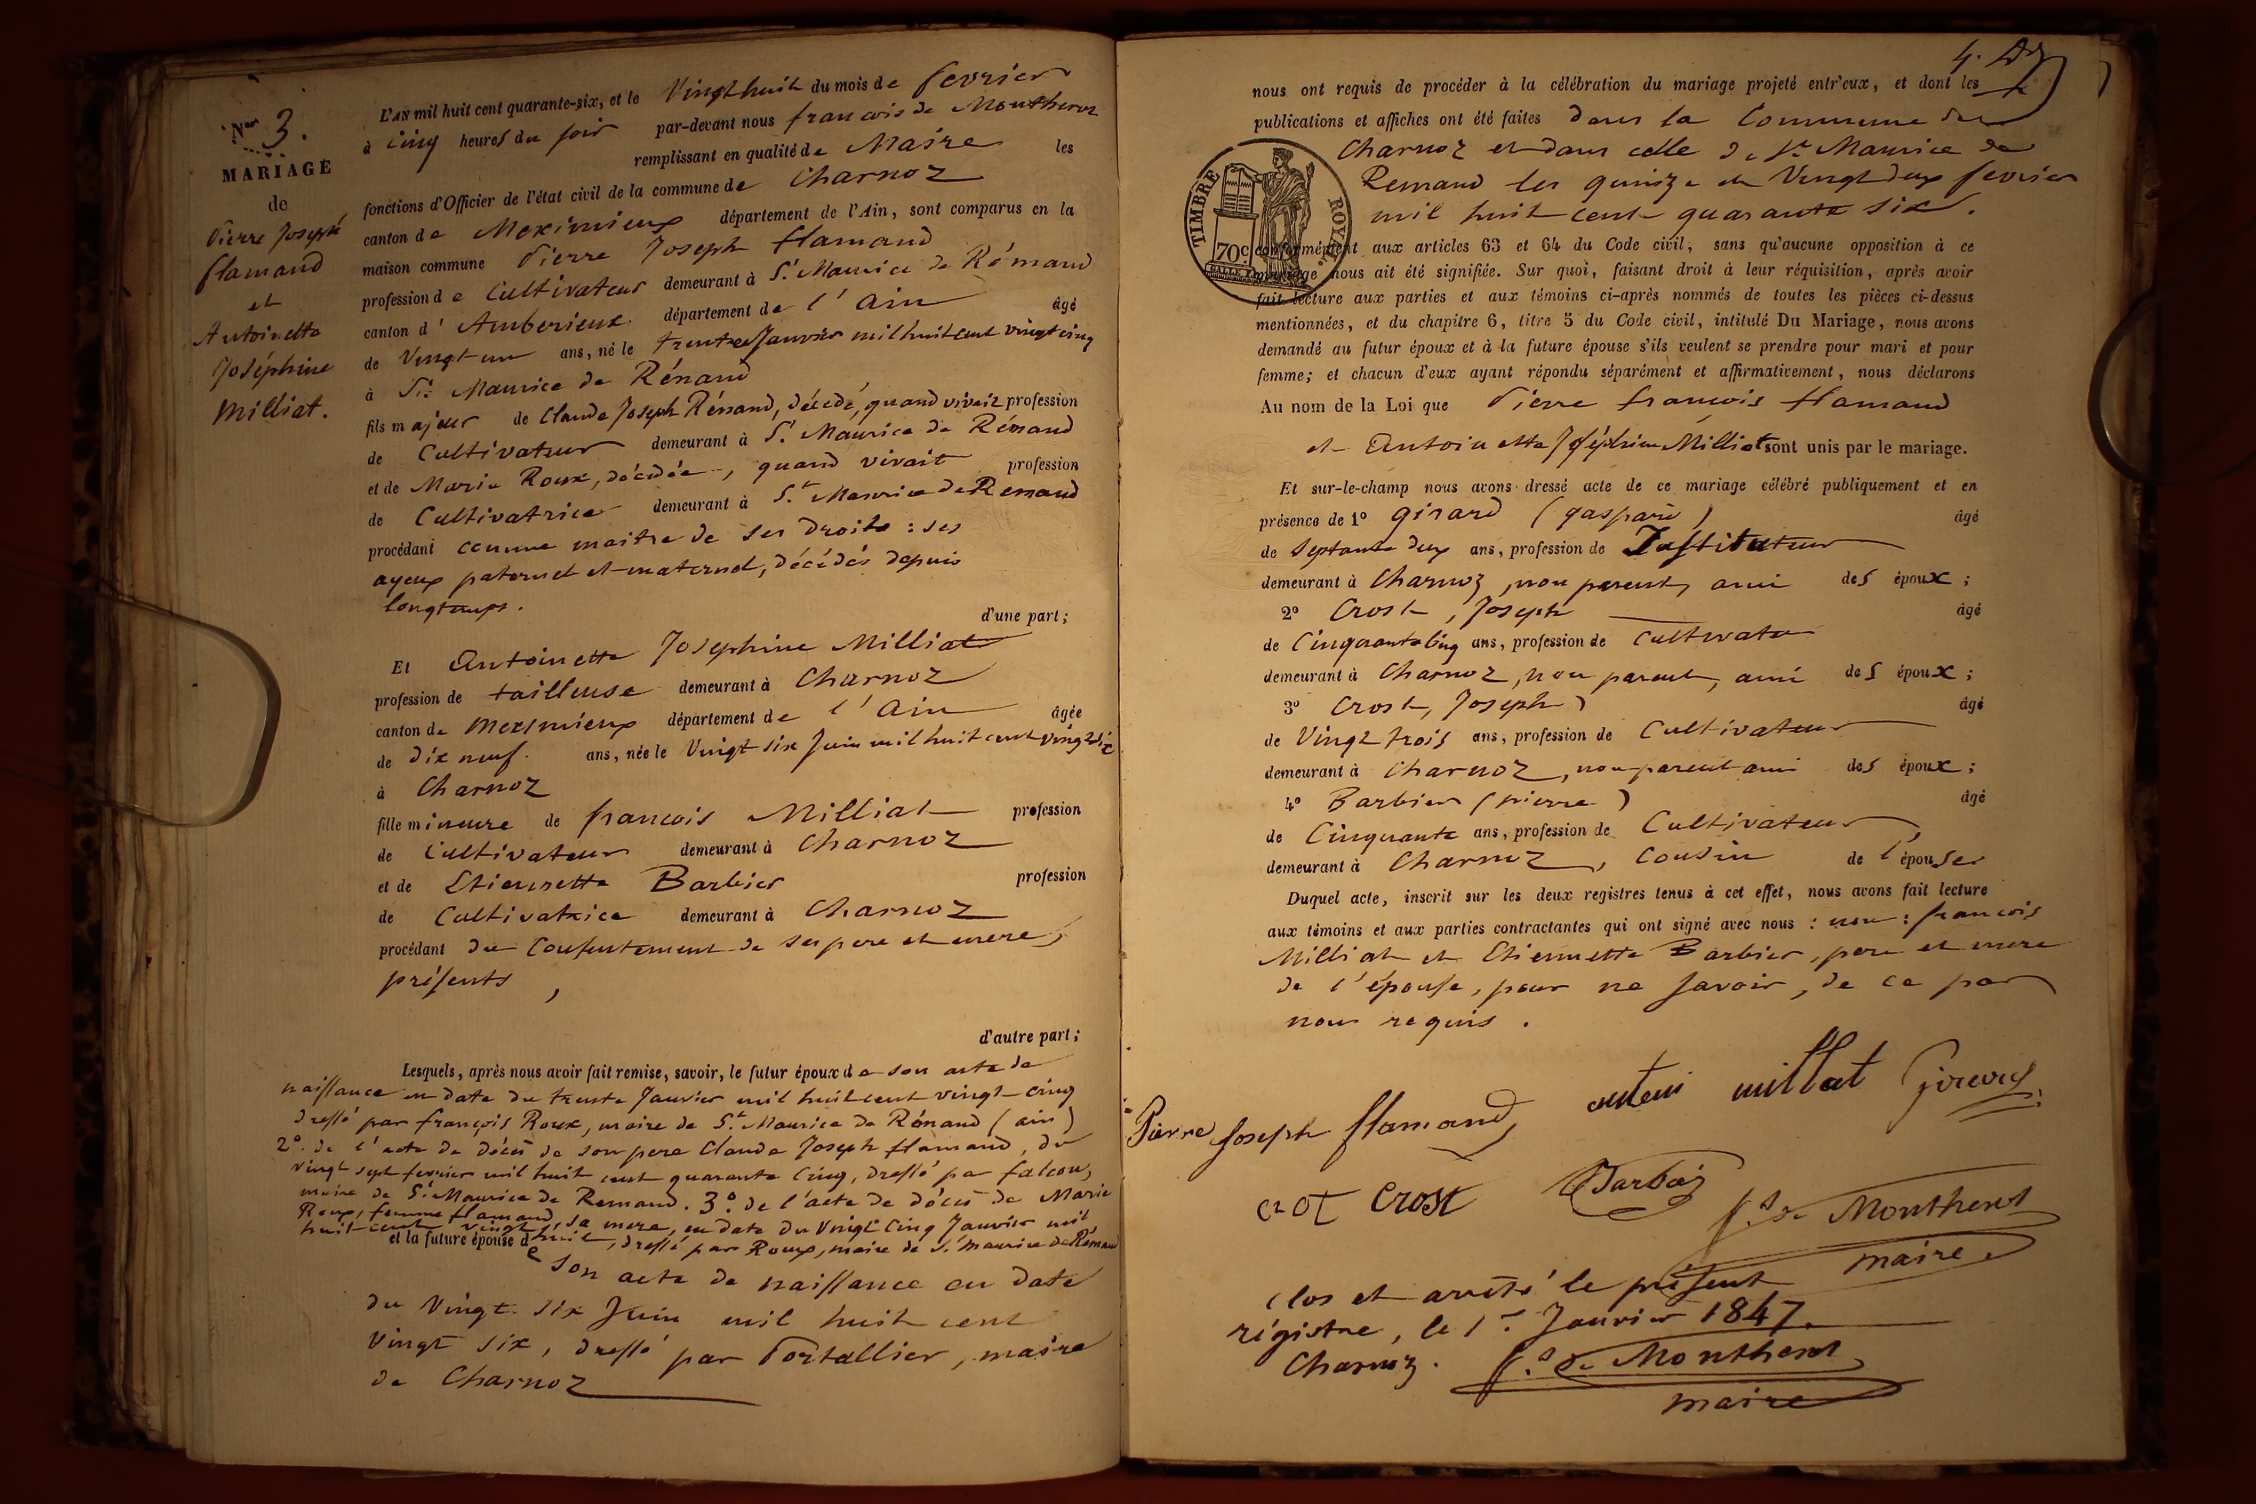 Nos 3.
MARIAGE
de
Pierre Joseph
flamand
et
Antoinette
Joséphine
Milliat.
L'AN mil huit cent quarante-six, et le Vingt huit du mois de fevrier
à cinq heures du soir par-devant nous françois de Montherot
remplissant en qualité de Maire les
fonctions d'Officier de l'état civil de la commune de Charnoz
canton de Meximieux département de l'Ain, sont comparus en la
maison commune Pierre Joseph flamand
profession de Cultivateur demeurant à St. Maurice de Rémand
canton d'Amberieux département de l'Ain âgé
de Vingt un ans, né le trente Janvier mil huit cent vingt cinq
à St. Maurice de Rémand
fils majeur de Claude Joseph Rémand, décédé, quand vivait profession
de Cultivateur demeurant à St. Maurice de Rémand
et de Marie Roux, décédée, quand vivait profession
de Cultivatrice demeurant à St. Maurice de Remand
procédant comme maitre de ses droits : ses
ayeux paternel et maternel, décédés depuis
longtemps.
d'une part;
Et Antoinette Josephine Milliat
profession de tailleuse demeurant à Charnoz
canton de Meximieux département de l'Ain âgée
de dix neuf ans, née le Vingt six Juin mil huit cent vingt six
à Charnoz
fille mineure de françois Milliat profession
de Cultivateur demeurant à Charnoz
et de Etiennette Barbier profession
de Cultivatrice demeurant à Charnoz
procédant du Consentement de ses pere et mere,
présents,
d'autre part;
Lesquels, après nous avoir fait remise, savoir, le futur époux de son acte de
naissance en date du trente Janvier mil huit cent vingt-cinq
dressé par françois Roux, maire de St. Maurice de Rémand (ain)
2° de l'acte de décès de son pere Claude Joseph flamand, du
vingt sept fevrier mil huit cent quarante cinq, dressé par falcon,
maire de St. Maurice de Remand. 3° de l'acte de décès de Marie
Roux, femme flamand, sa mere, en date du Vingt Cinq Janvier mil
huit cent vingt huit, dressé par Roux, maire de St. Maurice de Rémand
et la future épouse de
son acte de naissance en date
du Vingt six Juin mil huit cent
Vingt six, dressé par Portallier, maire
de Charnoz
nous ont requis de procéder à la célébration du mariage projeté entr'eux, et dont les
publications et affiches ont été faites dans la Commune de
Charnoz et dans celle de St. Maurice de
Remand les quinze et Vingt deux fevrier
mil huit cent quarante six.
TIMBRE ROYAL
70c
conformément aux articles 63 et 64 du Code civil, sans qu'aucune opposition à ce
mariage nous ait été signifiée. Sur quoi, faisant droit à leur réquisition, après avoir
fait lecture aux parties et aux témoins ci-après nommés de toutes les pièces ci-dessus
mentionnées, et du chapitre 6, titre 5 du Code civil, intitulé Du Mariage, nous avons
demandé au futur époux et à la future épouse s'ils veulent se prendre pour mari et pour
femme; et chacun d'eux ayant répondu séparément et affirmativement, nous déclarons
Au nom de la Loi que Pierre françois flamand
et Antoinette Joséphine Milliat sont unis par le mariage.
Et sur-le-champ nous avons dressé acte de ce mariage célébré publiquement et en
présence de 1° girard (gaspard) âgé
de Septante deux ans, profession de Instituteur
demeurant à Charnoz, non parent, ami des époux;
2° Crost, Joseph âgé
de Cinquante cinq ans, profession de Cultivateur
demeurant à Charnoz, non parent, ami des époux;
3° Crost, Joseph âgé
de Vingt trois ans, profession de Cultivateur
demeurant à Charnoz, non parent ami des époux;
4° Barbier (pierre) âgé
de Cinquante ans, profession de Cultivateur,
demeurant à Charnoz, Cousin de l'épouse
Duquel acte, inscrit sur les deux registres tenus à cet effet, nous avons fait lecture
aux témoins et aux parties contractantes qui ont signé avec nous : non : françois
Milliat et Etiennette Barbier, pere et mere
de l'épouse, pour ne savoir, de ce par
nous requis.
Pierre Joseph flamand millat
Crost
fd. de Montherot
maire
Clos et arrêté le présent
régistre, le 1er Janvier 1847.
Charnoz. fd. de Montherot
maire